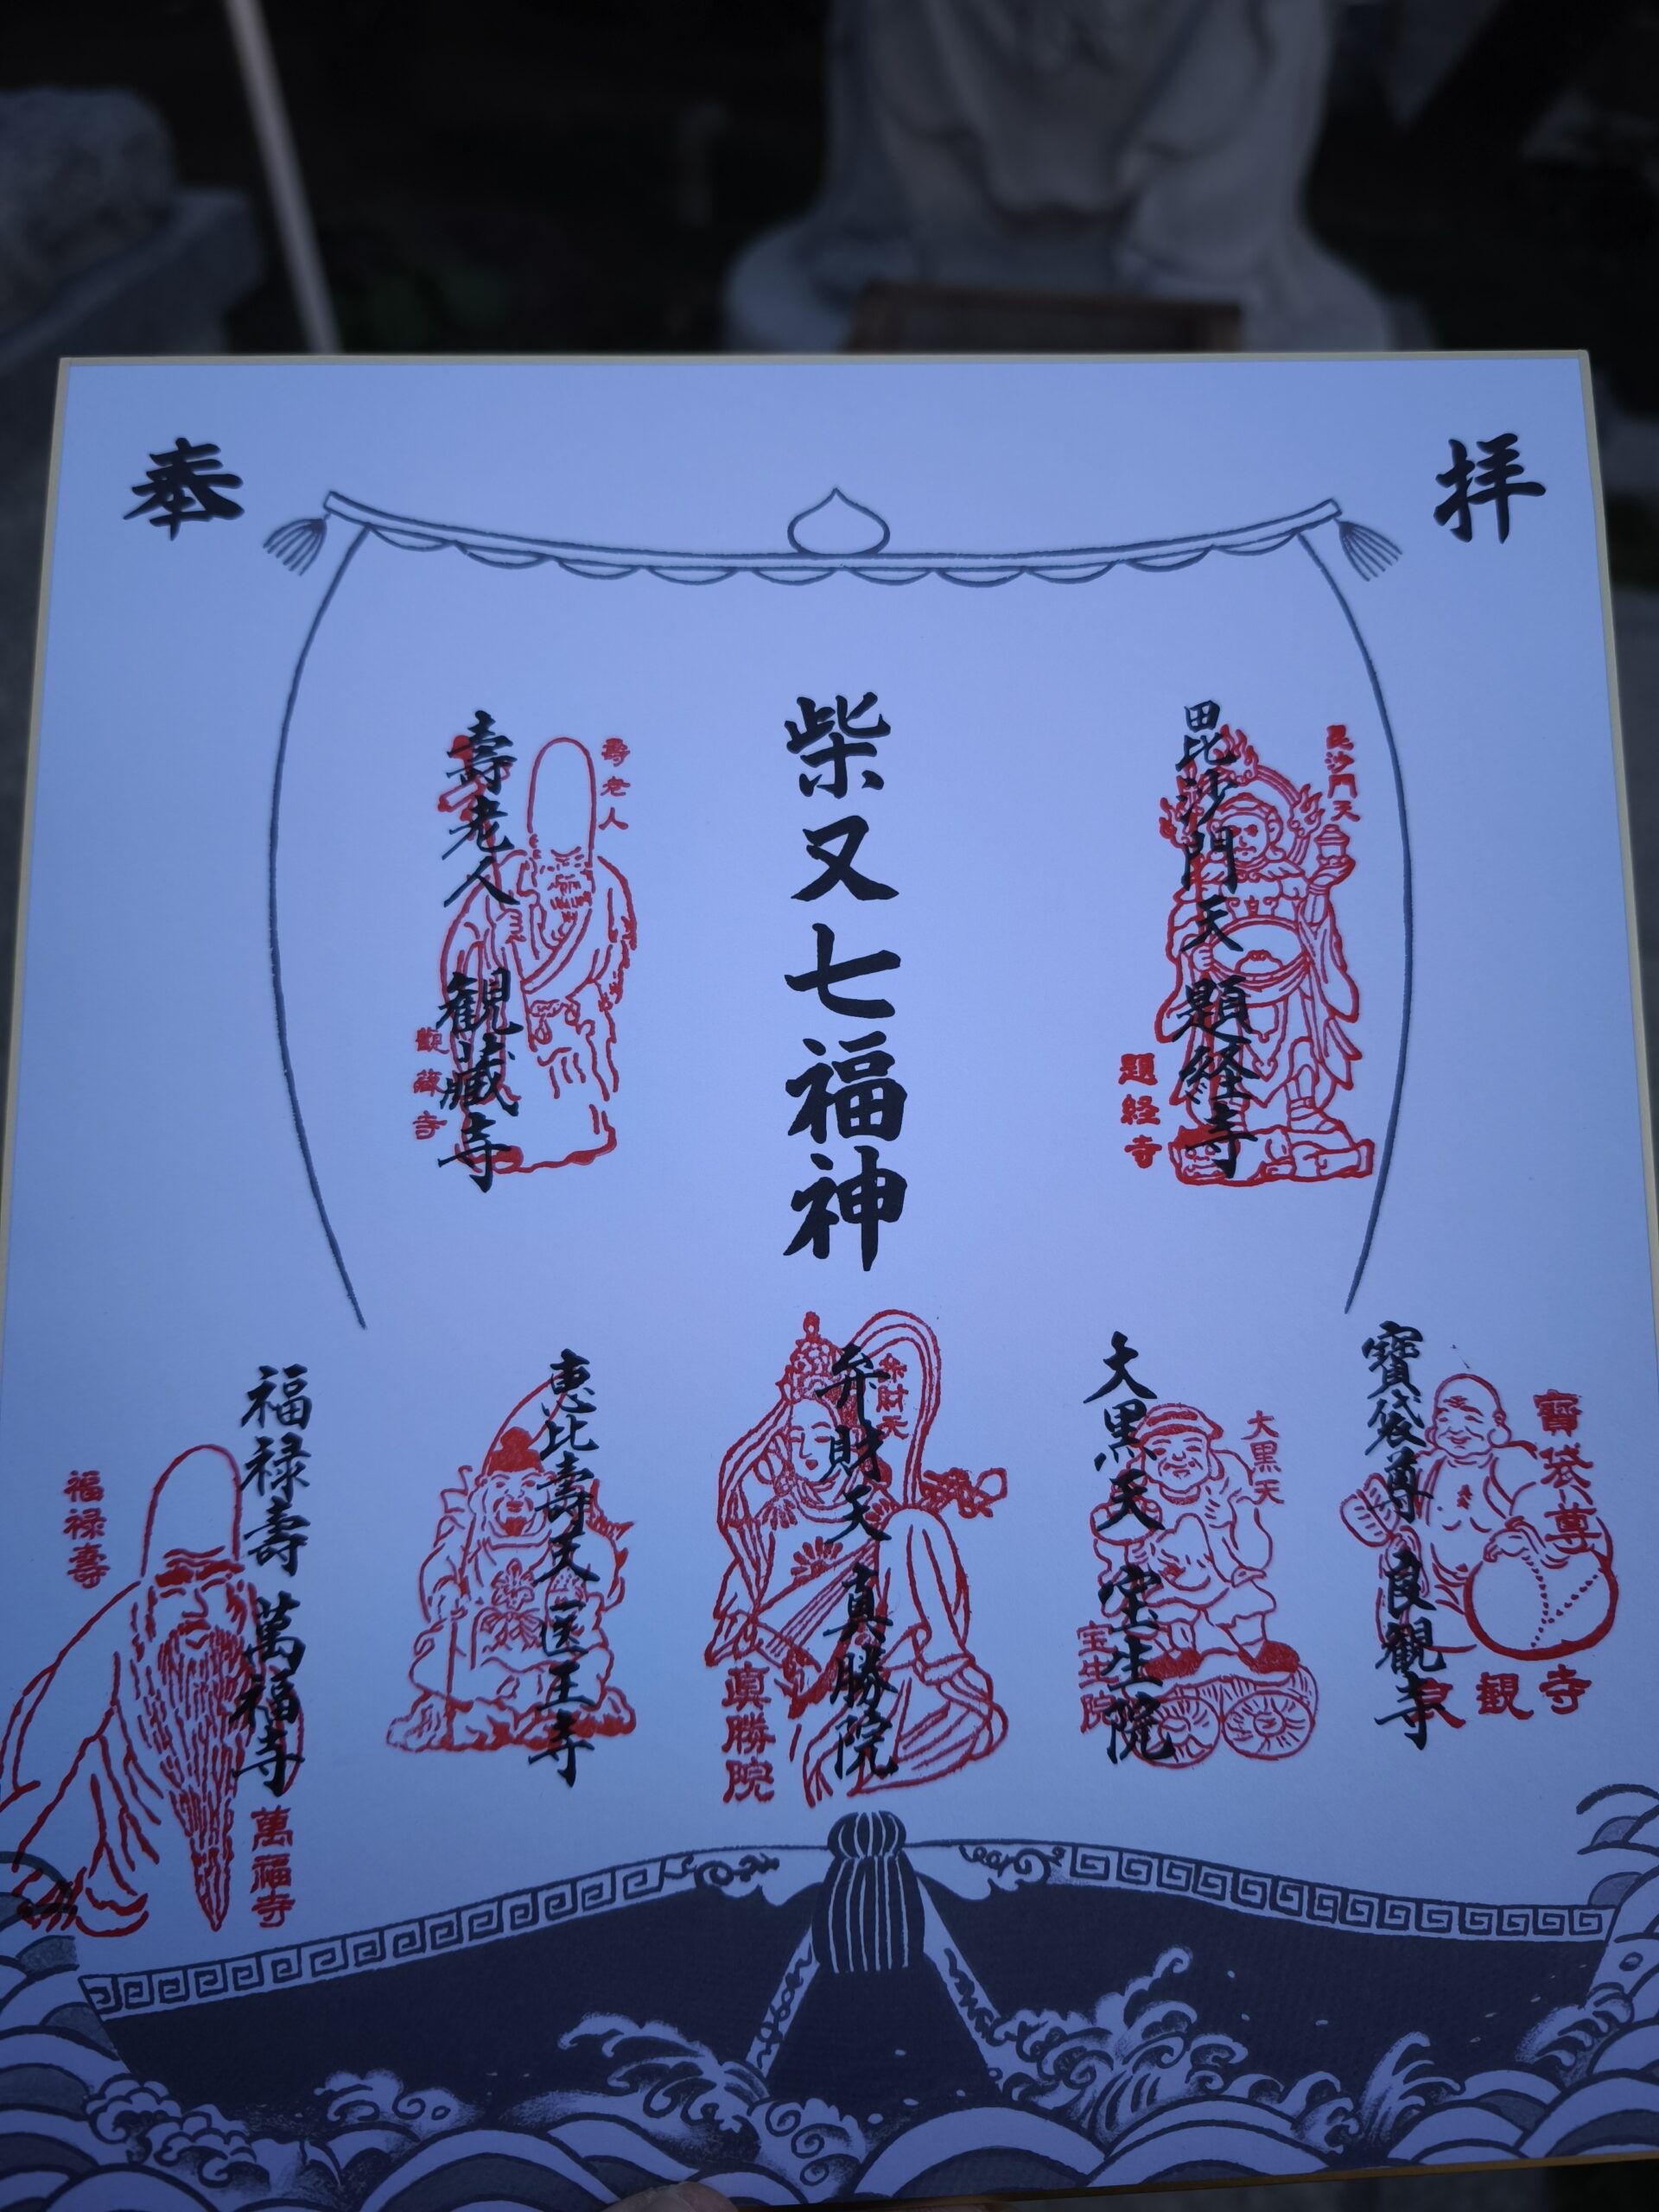 奉
拝
柴又七福神
毘沙門天 題経寺
毘沙門天
題経寺
壽老人 観蔵寺
壽老人
観蔵寺
寶袋尊 良観寺
寶袋尊
良観寺
大黒天 宝生院
大黒天
宝生院
弁財天 真勝院
弁財天
眞勝院
恵比壽天 医王寺
福禄壽 萬福寺
福禄壽
萬福寺